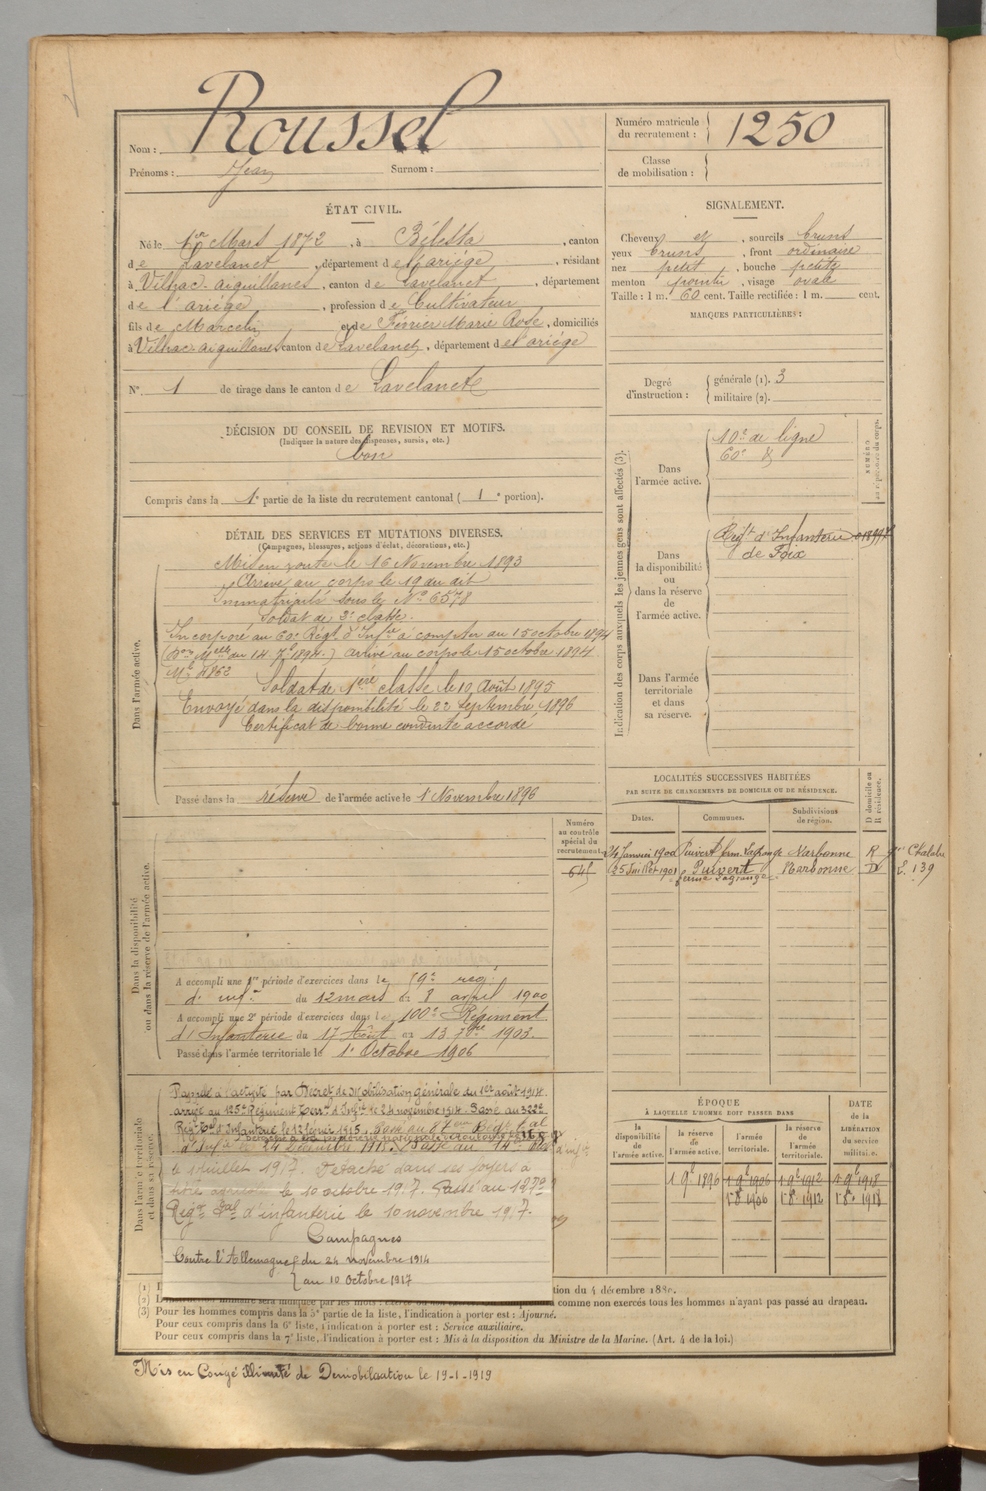 Nom : Roussel
Prénoms : Jean Surnom :
Numéro matricule du recrutement : 1250
Classe de mobilisation :
ÉTAT CIVIL.
Né le 1er Mars 1872, à Bélesta, canton
de Lavelanet, département de l'ariège, résidant
à Vilhac-aiguillanes, canton de Lavelanet, département
de l'ariège, profession de Cultivateur
fils de Marcelin et de Ferrier Marie Rose, domiciliés
à Vilhac-aiguillanes canton de Lavelanet, département de l'ariège
N° 1 de tirage dans le canton de Lavelanet
SIGNALEMENT.
Cheveux et, sourcils bruns
yeux bruns, front ordinaire
nez petit, bouche petite
menton pointu, visage ovale
Taille : 1 m. 60 cent. Taille rectifiée : 1 m. cent.
MARQUES PARTICULIÈRES :
Degré d'instruction : générale (1). 3
militaire (2).
DÉCISION DU CONSEIL DE REVISION ET MOTIFS.
(Indiquer la nature des dispenses, sursis, etc.)
bon
Compris dans la 1e partie de la liste du recrutement cantonal ( 1e portion).
DÉTAIL DES SERVICES ET MUTATIONS DIVERSES.
(Campagnes, blessures, actions d'éclat, décorations, etc.)
Dans l'armée active.
Mis en route le 16 Novembre 1893
Arrivé au corps le 19 du dit
Immatriculé sous le No 6578
Soldat de 2e classe.
Incorporé au 60e Régt d'Infie à compter du 15 octobre 1894
arrivé au corps le 15 octobre 1894
Mle 4862
Soldat de 1ère classe le 10 Août 1895
Envoyé dans la disponibilité le 22 septembre 1896
Certificat de bonne conduite accordé
Passé dans la réserve de l'armée active le 1 Novembre 1896
Indication des corps auxquels les jeunes gens sont affectés (3).
Dans l'armée active.
10e de ligne
60e
NUMÉRO
Dans la disponibilité ou dans la réserve de l'armée active.
Régt d'Infanterie
de Foix
Dans l'armée territoriale et dans sa réserve.
LOCALITÉS SUCCESSIVES HABITÉES
PAR SUITE DE CHANGEMENTS DE DOMICILE OU DE RÉSIDENCE.
Dates. Communes. Subdivisions de région. D domicile ou R résidence.
24 Janvier 1900 Puivert Narbonne R Chalabre
25 Juillet 1901 Puivert ferme Lagrange Narbonne D 139
Numéro au contrôle spécial du recrutement.
645
Dans la disponibilité ou dans la réserve de l'armée active.
A accompli une 1re période d'exercices dans le
d'infie du 12 mars au 8 avril 1900
A accompli une 2e période d'exercices dans le 100e Régiment
d'Infanterie du 17 Août au 13 7bre 1903.
Passé dans l'armée territoriale le 1er Octobre 1906
Dans l'armée territoriale et dans sa réserve.
Rappelé à l'activité par Décret de Mobilisation générale du 1er août 1914
arrivé au 125e Régiment Terr. d'Infie le 24 novembre 1914. Passé au 322e
le 1 juillet 1917. Détaché dans ses foyers à
titre agricole le 10 octobre 1917. Passé au 127e
Régt Tal d'infanterie le 10 novembre 1917.
Campagnes
Contre l'Allemagne du 24 novembre 1914
au 10 Octobre 1917
ÉPOQUE
À LAQUELLE L'HOMME DOIT PASSER DANS
la disponibilité de l'armée active. la réserve de l'armée active. l'armée territoriale. la réserve de l'armée territoriale.
DATE de la LIBÉRATION du service militaire.
1 9b 1896 1 9b 1906 1 9b 1912 1 9b 1918
1 8bre 1906 1 8bre 1912 1 8bre 1918
du 4 décembre
comme non exercés tous les hommes n'ayant pas passé au drapeau.
(3) Pour les hommes compris dans la 5e partie de la liste, l'indication à porter est : Ajourné.
Pour ceux compris dans la 6e liste, l'indication à porter est : Service auxiliaire.
Pour ceux compris dans la 7e liste, l'indication à porter est : Mis à la disposition du Ministre de la Marine. (Art. 4 de la loi.)
Mis en Congé illimité de Démobilisation le 19-1-1919